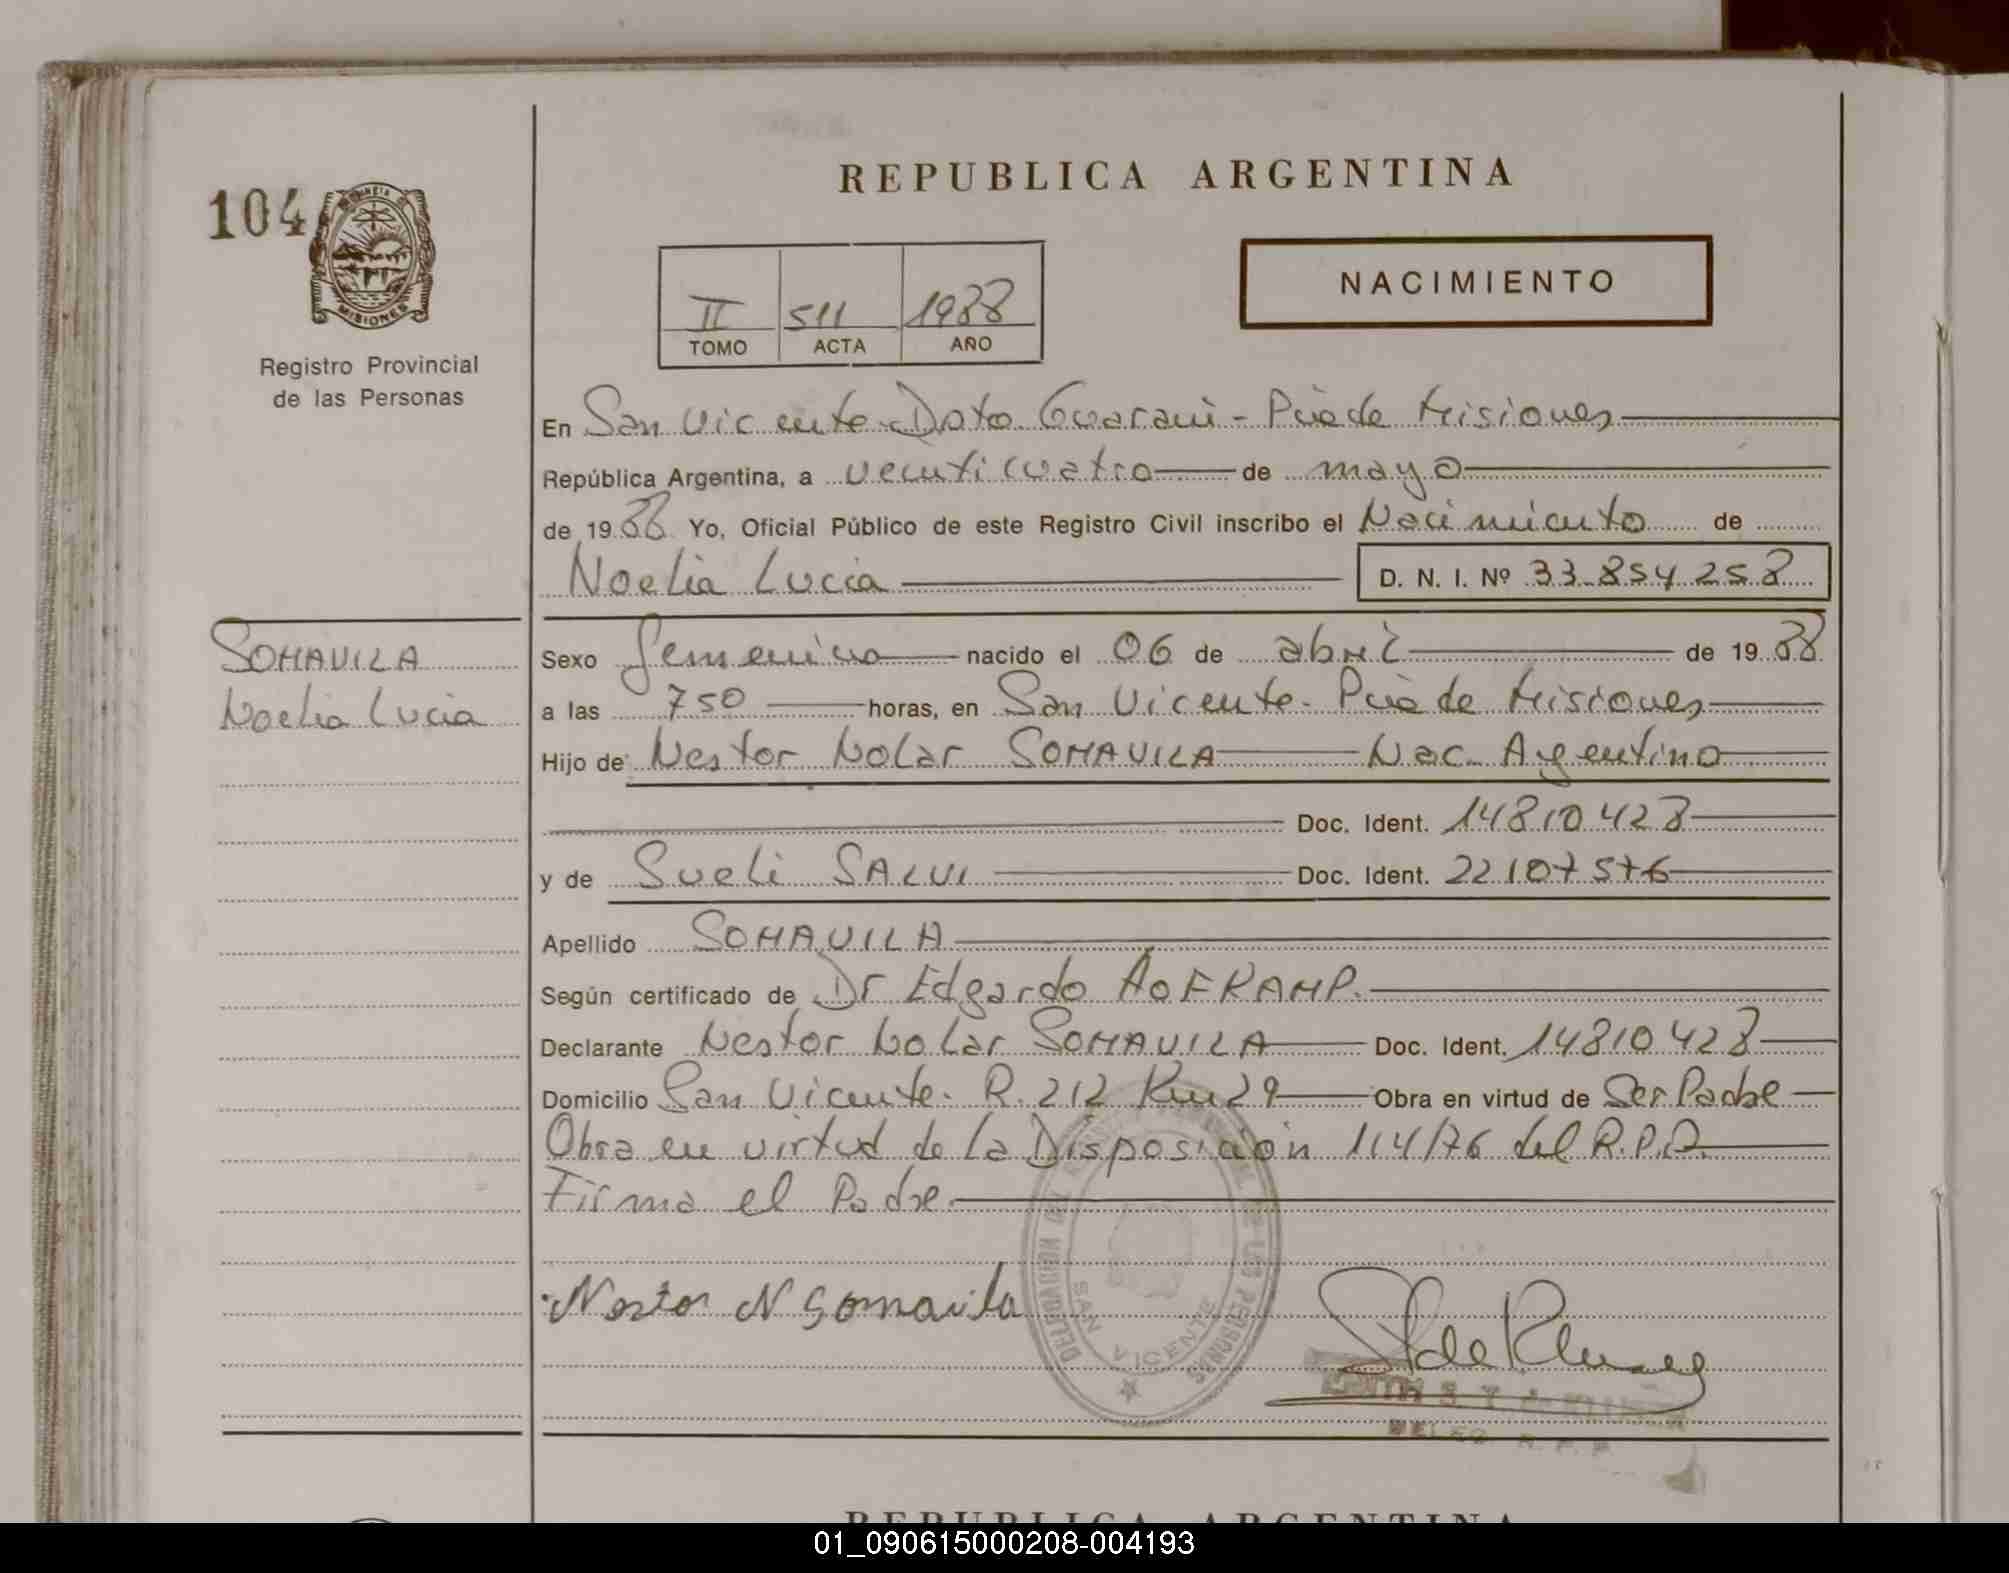 REPUBLICA ARGENTINA
104
PROVINCIA
MISIONES
Registro Provincial
de las Personas
II 511 1988
TOMO ACTA AÑO
NACIMIENTO
En San Vicente-Dpto Guarani-Pciade Misiones
República Argentina, a veinticuatro de mayo
de 1988 Yo, Oficial Público de este Registro Civil inscribo el Nacimiento de
Noelia Lucia D. N. I. Nº 33.854 258
SOMAVILA
Noelia Lucia
Sexo femenino nacido el 06 de abril de 1988
a las 750 horas, en San Vicente-Pciade Misiones
Hijo de: Nestor Nolar SOMAVILA Nac. Argentino
Doc. Ident. 14810428
y de Sueli SALVI Doc. Ident. 22107576
Apellido SOMAVILA
Según certificado de Dr Edgardo HOFKAMP.
Declarante Nestor Nolar SOMAVILA Doc. Ident. 14810428
Domicilio San Vicente. R. 212 Km 29 Obra en virtud de Ser Padre
Obra en virtud de la Disposición 114/76 del R.P.P.
Firma el Padre.
Nestor N Somavila
DELEGACION DEL REGISTRO PROVINCIAL DE LAS PERSONAS
SAN VICENTE
DELEG. R. P. P.
REPUBLICA ARGENTINA
01_090615000208-004193